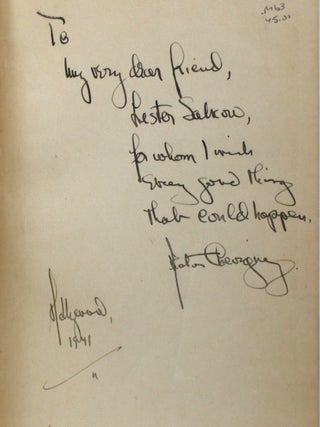 To
my very dear friend,
Lester Salkow,
for whom I wish
every good thing
that could happen.
Hector Chevigny
Hollywood,
1941